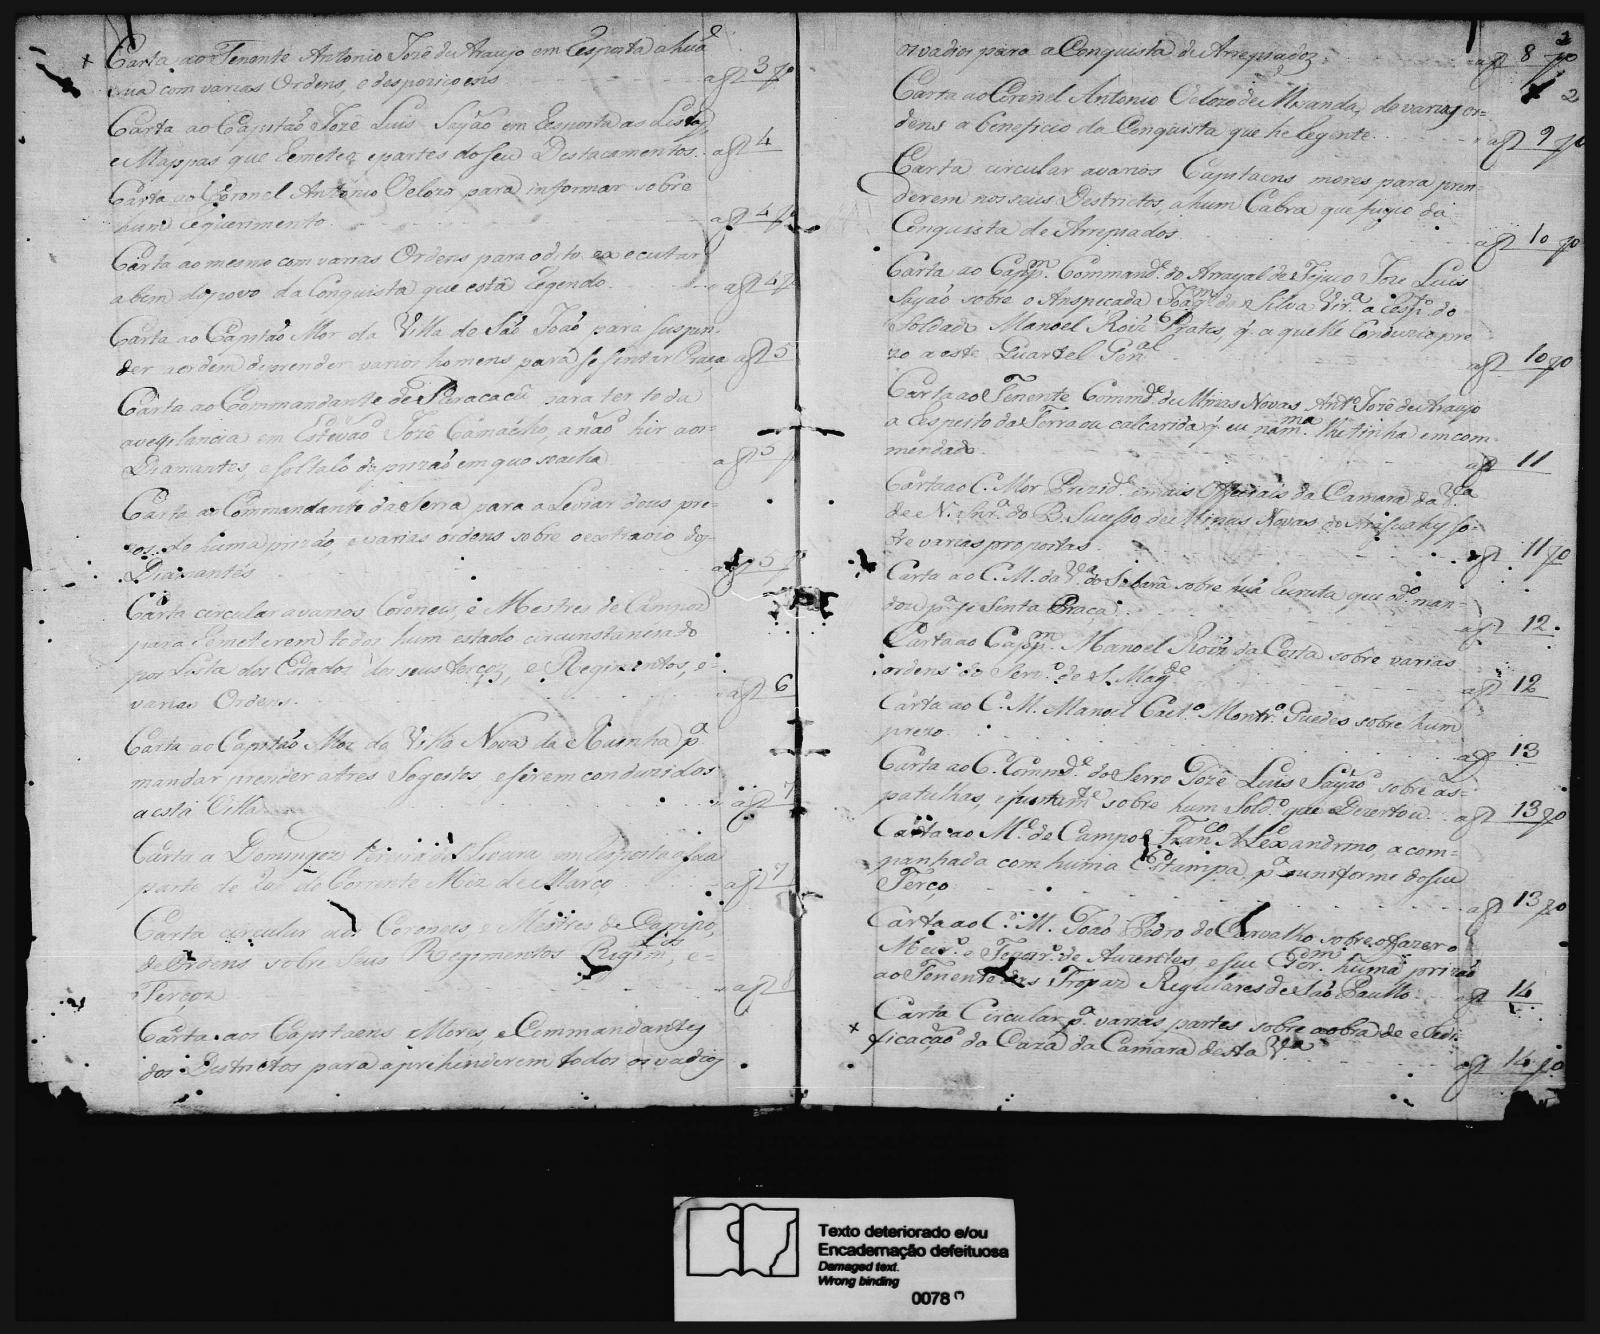 Carta ao Tenente Antonio Jozé de Araujo em Resposta a huã
sua com varias Ordens, e desporicoens a f 3 vo
Carta ao Capitão Jozé Luis Sayão em Resposta as Listas,
e Mappas que Remeteo, e partes do seu Destacamentos. a f 4
Carta ao Coronel Antonio Velozo para informar sobre
hum requerimento a f 4 vo
Carta ao mesmo com varias Ordens para o dito executar
a bem do povo da Conquista que está Regendo. a f 4 vo
Carta ao Capitão Mor da Villa de São João para suspen-
der a ordem de prender varios homens, para se sentar Praça a f 5
Carta ao Commandante de Paracatú para ter toda
a vegilancia em Estevão Jozé Camacho, a não hir aos
Diamantes, e soltalo da prizão em que se acha a f 5
Carta ao Commandante da Serra para aLiviar dous pre-
zos de huma prizão, e varias ordens sobre o extravio dos
Diamantes a f 5 v
Carta circular a varios Coroneis, e Mestres de Campos
para Remeterem todos hum estado circunstanciado
por Lista dos Estados dos seus terços, e Regimentos, e
varias Ordens. a f 6
Carta ao Capitão Mor da Villa Nova da Rainha pa.
mandar prender a tres Sogeitos e serem conduzidos
a esta Villa a f 7
Carta a Domingos Pereira de em Resposta a sua
parte de do Corrente Mez de Março a f 7
Carta circular aos Coroneis e Mestres de Campo,
de Ordens sobre seus Regimentos e
Terços a f 8
Carta aos Capitaens Mores, e Commandantes
dos Destrictos para aprehenderem todos os vadios
2
os vadios para a Conquista de Arrepiados a f 8 vo
2
Carta ao Coronel Antonio Velozo de Miranda, de varias or-
dens a beneficio da Conquista que he Regente a f 9 vo
Carta circular a varios Capitaens mores para pren-
derem nos seus Destrictos, a hum Cabra que fugio da
Conquista de Arrepiados a f 10 vo
Carta ao Capm. Commande. do Arrayal do Tejuco Jozé Luis
Sayão sobre o Anspeçada Joaqm. da Silva do
Soldado Manoel Roiz q. a quelle Conduzia pre
zo a este Quartel Genal. a f 10 vo
Carta ao Tenente Commde. de Minas Novas Anto. Jozé de Araujo
a Respeito da Terra ou calcarida q. eu lhe tinha emcom
mendado. a f 11
Carta ao C. Mor Prezide. e mais Officiais da Camara da Va.
de N. Snra. do B. Sucesso de Minas Novas do Arasuahy so-
bre varias propostas. a f 11 vo
Carta ao C. M. da Va. do Sabará sobre huã Recruta que o do. man-
dou pa. se Sentar Praça. a f 12
Carta ao Capm. Manoel Roiz da Costa sobre varias
ordens do Servo. de S. Magde. a f 12
Carta ao C. M. Manoel Caeto. Montro. Guedes sobre hum
prezo. a f 13
Carta ao C. Commde. do Serro Jozé Luis Sayão sobre as
patulhas, e juntame. sobre hum Soldo. que Dezertou a f 13 vo
Carta ao Me. de Campo Franco. Alexandrino, acom-
panhada com huma Estampa pa. o uniforme do seu
Terço. a f 13 vo
Carta ao C. M. João Pedro de Carvalho sobre o Fazer o
de Auzentes, e huma prizão
ao Tenente das Tropas Regulares de São Paullo a f 14
Carta Circular pa. varias partes sobre a obra de e Redi-
ficação da Caza da Camara desta Va. a f 14 vo
Texto deteriorado e/ou
Encadernação defeituosa
Damaged text.
Wrong binding
0078